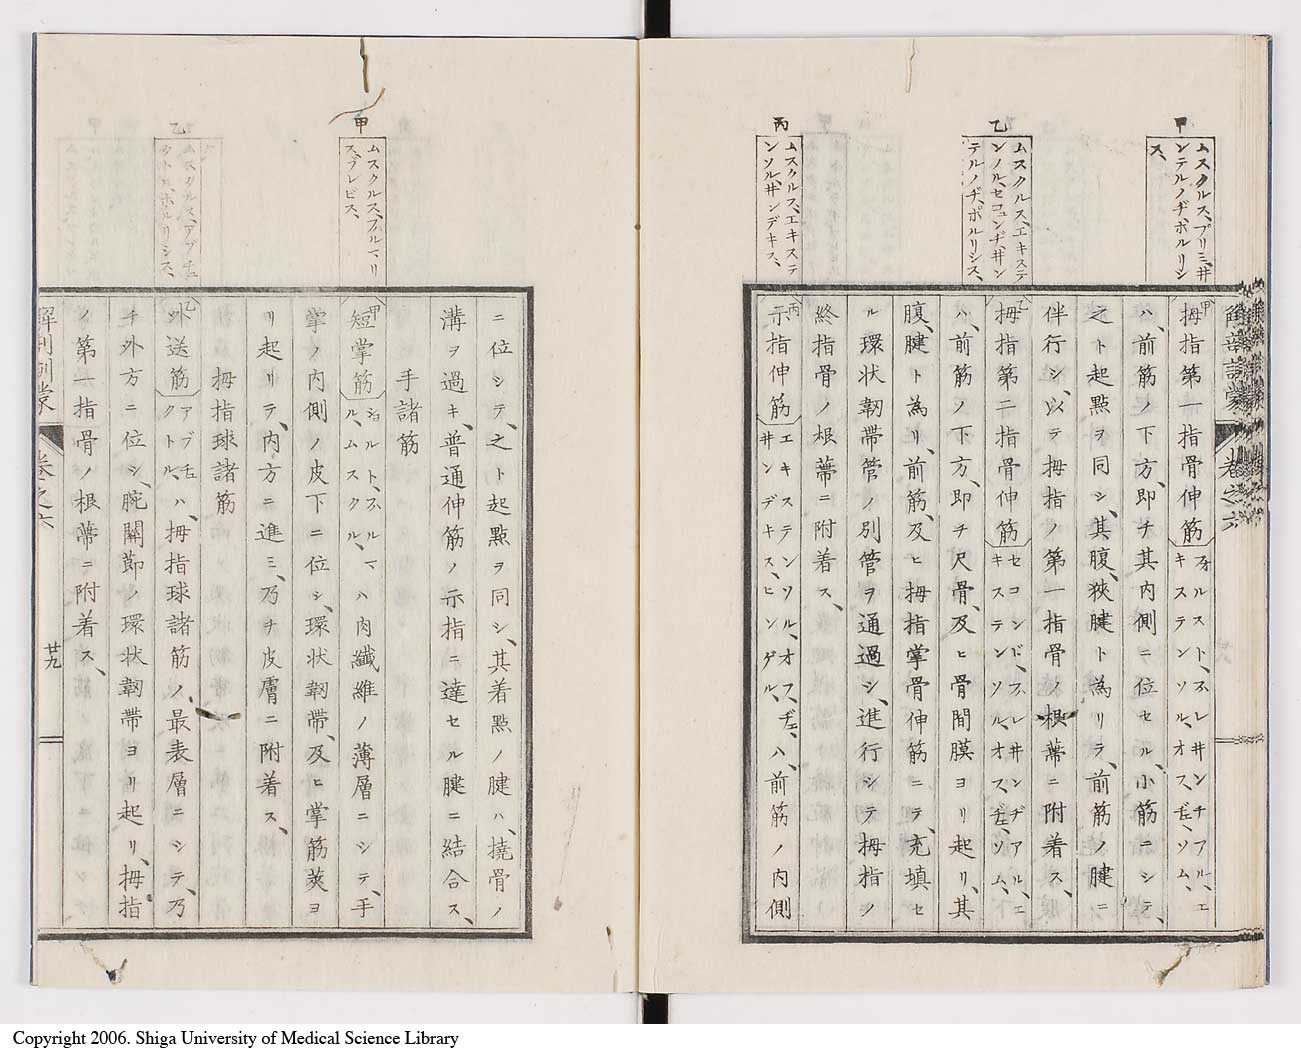 甲
ムスクルス、プリミ、井
ンテルノヂ、ポルリシ
ス、
乙
ムスクルス、エキステ
ンソル、セコュンヂ、井ン
テルノヂ、ポルリシス、
丙
ムスクルス、エキステ
ンソル、井ンデキス、
解剖訓蒙 巻之六
甲拇指第一指骨伸筋 フォルスト、フレ井ンチフル、エキステンソル、オス、ヂェ、ソム、
ハ、前筋ノ下方、即チ其内側ニ位セル、小筋ニシテ、
之ト起點ヲ同シ、其腹、狹腱ト為リテ、前筋ノ腱ニ
伴行シ、以テ拇指ノ第一指骨ノ根蒂ニ附着ス、
乙拇指第二指骨伸筋 セコンド、フレ井ンヂアル、エキステンソル、オス、ヂェ、ソム、
ハ、前筋ノ下方、即チ尺骨、及ヒ骨間膜ヨリ起リ、其
腹、腱ト為リ、前筋、及ヒ拇指掌骨伸筋ニテ、充填セ
ル環状韌帶管ノ別管ヲ通過シ、進行シテ拇指ノ
終指骨ノ根蔕ニ附着ス、
丙示指伸筋 エキステンソル、オフ、ヂェ、井ンデキス、ヒンゲル、ハ、前筋ノ内側
甲
ムスクルス、パルマリ
ス、ブレビス、
乙
ムスクルス、アブチュ
クトル、ポルリシス、
ニ位シテ、之ト起點ヲ同シ、其着點ノ腱ハ、撓骨ノ
溝ヲ過キ、普通伸筋ノ示指ニ達セル腱ニ結合ス、
手諸筋
甲短掌筋 ショルト、パルマル、ムスクル、ハ肉纖維ノ薄層ニシテ、手
掌ノ内側ノ皮下ニ位シ、環状韌帶、及ヒ掌筋莢ヨ
リ起リテ、内方ニ進ミ、乃チ皮膚ニ附着ス、
拇指球諸筋
乙外送筋 アブチュクトル、ハ、拇指球諸筋ノ、最表層ニシテ、乃
チ外方ニ位シ、腕關節ノ環状韌帶ヨリ起リ、拇指
ノ第一指骨ノ根蔕ニ附着ス、
解剖訓蒙 巻之六 廿九
Copyright 2006. Shiga University of Medical Science Library